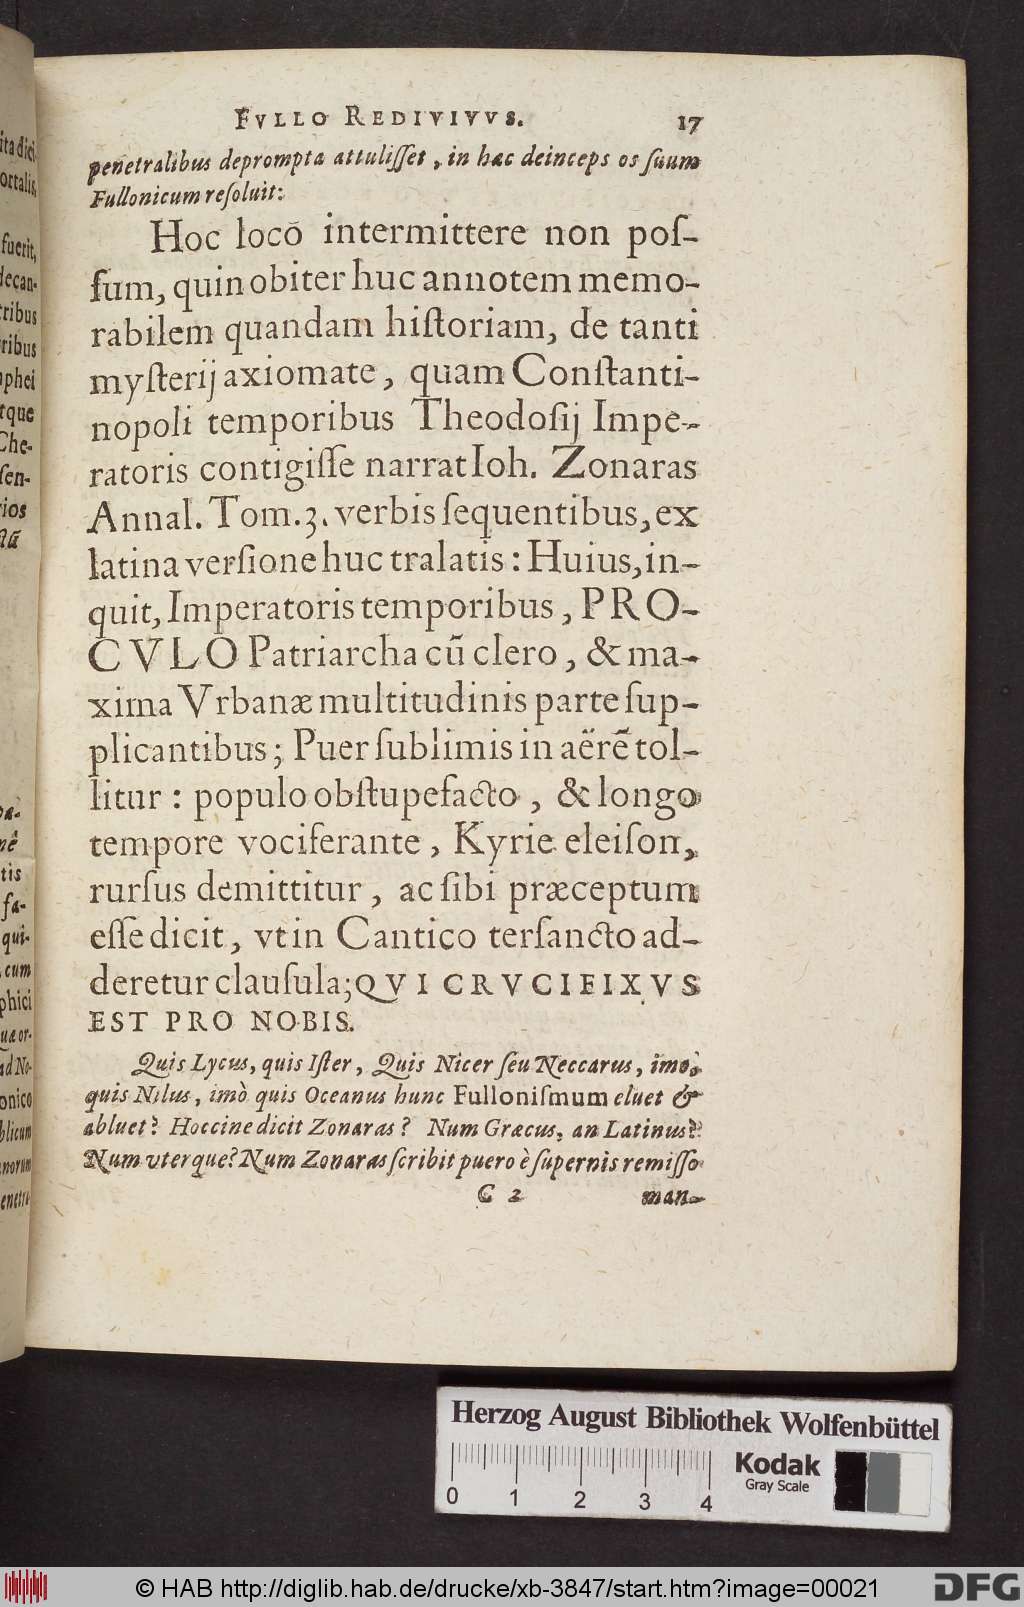 FVLLO REDIVIVVS. 17
penetralibus deprompta attulisset, in hac deinceps os suum
Fullonicum resoluit:
Hoc locō intermittere non pos-
sum, quin obiter huc annotem memo-
rabilem quandam historiam, de tanti
mysterij axiomate, quam Constanti-
nopoli temporibus Theodosij Impe-
ratoris contigisse narrat Ioh. Zonaras
Annal. Tom. 3. verbis sequentibus, ex
latina versione huc tralatis: Huius, in-
quit, Imperatoris temporibus, PRO-
CVLO Patriarcha cū clero, & ma-
xima Vrbanæ multitudinis parte sup-
plicantibus; Puer sublimis in aërē tol-
litur: populo obstupefacto, & longo
tempore vociferante, Kyrie eleison,
rursus demittitur, ac sibi præceptum
esse dicit, vt in Cantico tersancto ad-
deretur clausula; QVI CRVCIFIXVS
EST PRO NOBIS.
Quis Lycus, quis Ister, Quis Nicer seu Neccarus, imò
quis Nilus, imò quis Oceanus hunc Fullonismum eluet &
abluet? Hoccine dicit Zonaras? Num Græcus, an Latinus?
Num vterque? Num Zonaras scribit puero è supernis remisso
C 2 man-
ita dici
ortalis
fuerit,
decan-
tribus
ribus
phei
tque
Che-
sen-
rios
tis
fa-
qui-
cum
phici
quæ or-
ad No-
onico
blicum
norum
enetra-
Herzog August Bibliothek Wolfenbüttel
Kodak
Gray Scale
0 1 2 3 4
© HAB http://diglib.hab.de/drucke/xb-3847/start.htm?image=00021
DFG